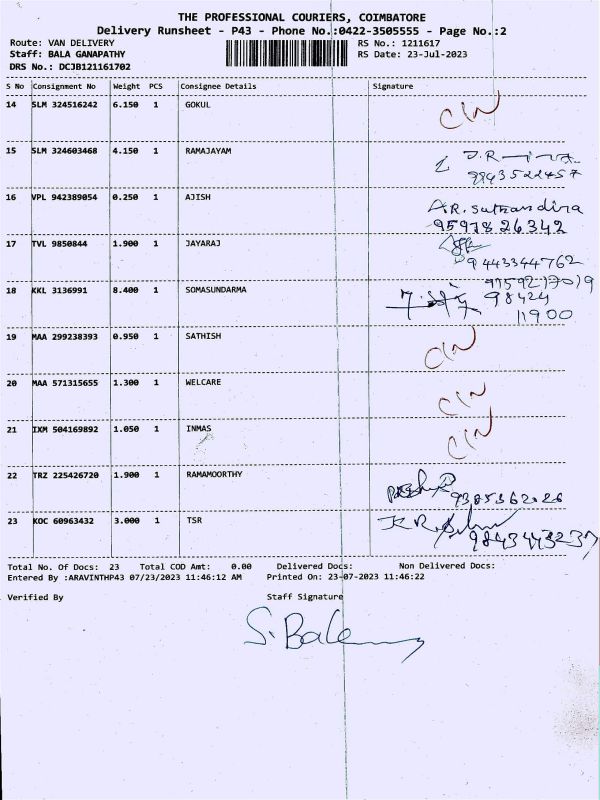 THE PROFESSIONAL COURIERS, COIMBATORE
Delivery Runsheet - P43 - Phone No.:0422-3505555 - Page No.:2
Route: VAN DELIVERY RS No.: 1211617
Staff: BALA GANAPATHY RS Date: 23-Jul-2023
DRS No.: DCJB121161702
S No Consignment No Weight PCS Consignee Details Signature
14 SLM 324516242 6.150 1 GOKUL C/N
15 SLM 324603468 4.150 1 RAMAJAYAM
9943522457
16 VPL 942389054 0.250 1 AJISH A.R.
9597826342
17 TVL 9850844 1.900 1 JAYARAJ
9443344762
18 KKL 3136991 8.400 1 SOMASUNDARMA
98424
11900
19 MAA 299238393 0.950 1 SATHISH C/N
20 MAA 571315655 1.300 1 WELCARE C/N
21 IXM 504169892 1.050 1 INMAS C/N
22 TRZ 225426720 1.900 1 RAMAMOORTHY
9385362026
23 KOC 60963432 3.000 1 TSR K.R.
9843443237
Total No. Of Docs: 23 Total COD Amt: 0.00 Delivered Docs: Non Delivered Docs:
Entered By :ARAVINTHP43 07/23/2023 11:46:12 AM Printed On: 23-07-2023 11:46:22
Verified By Staff Signature
S. Bala